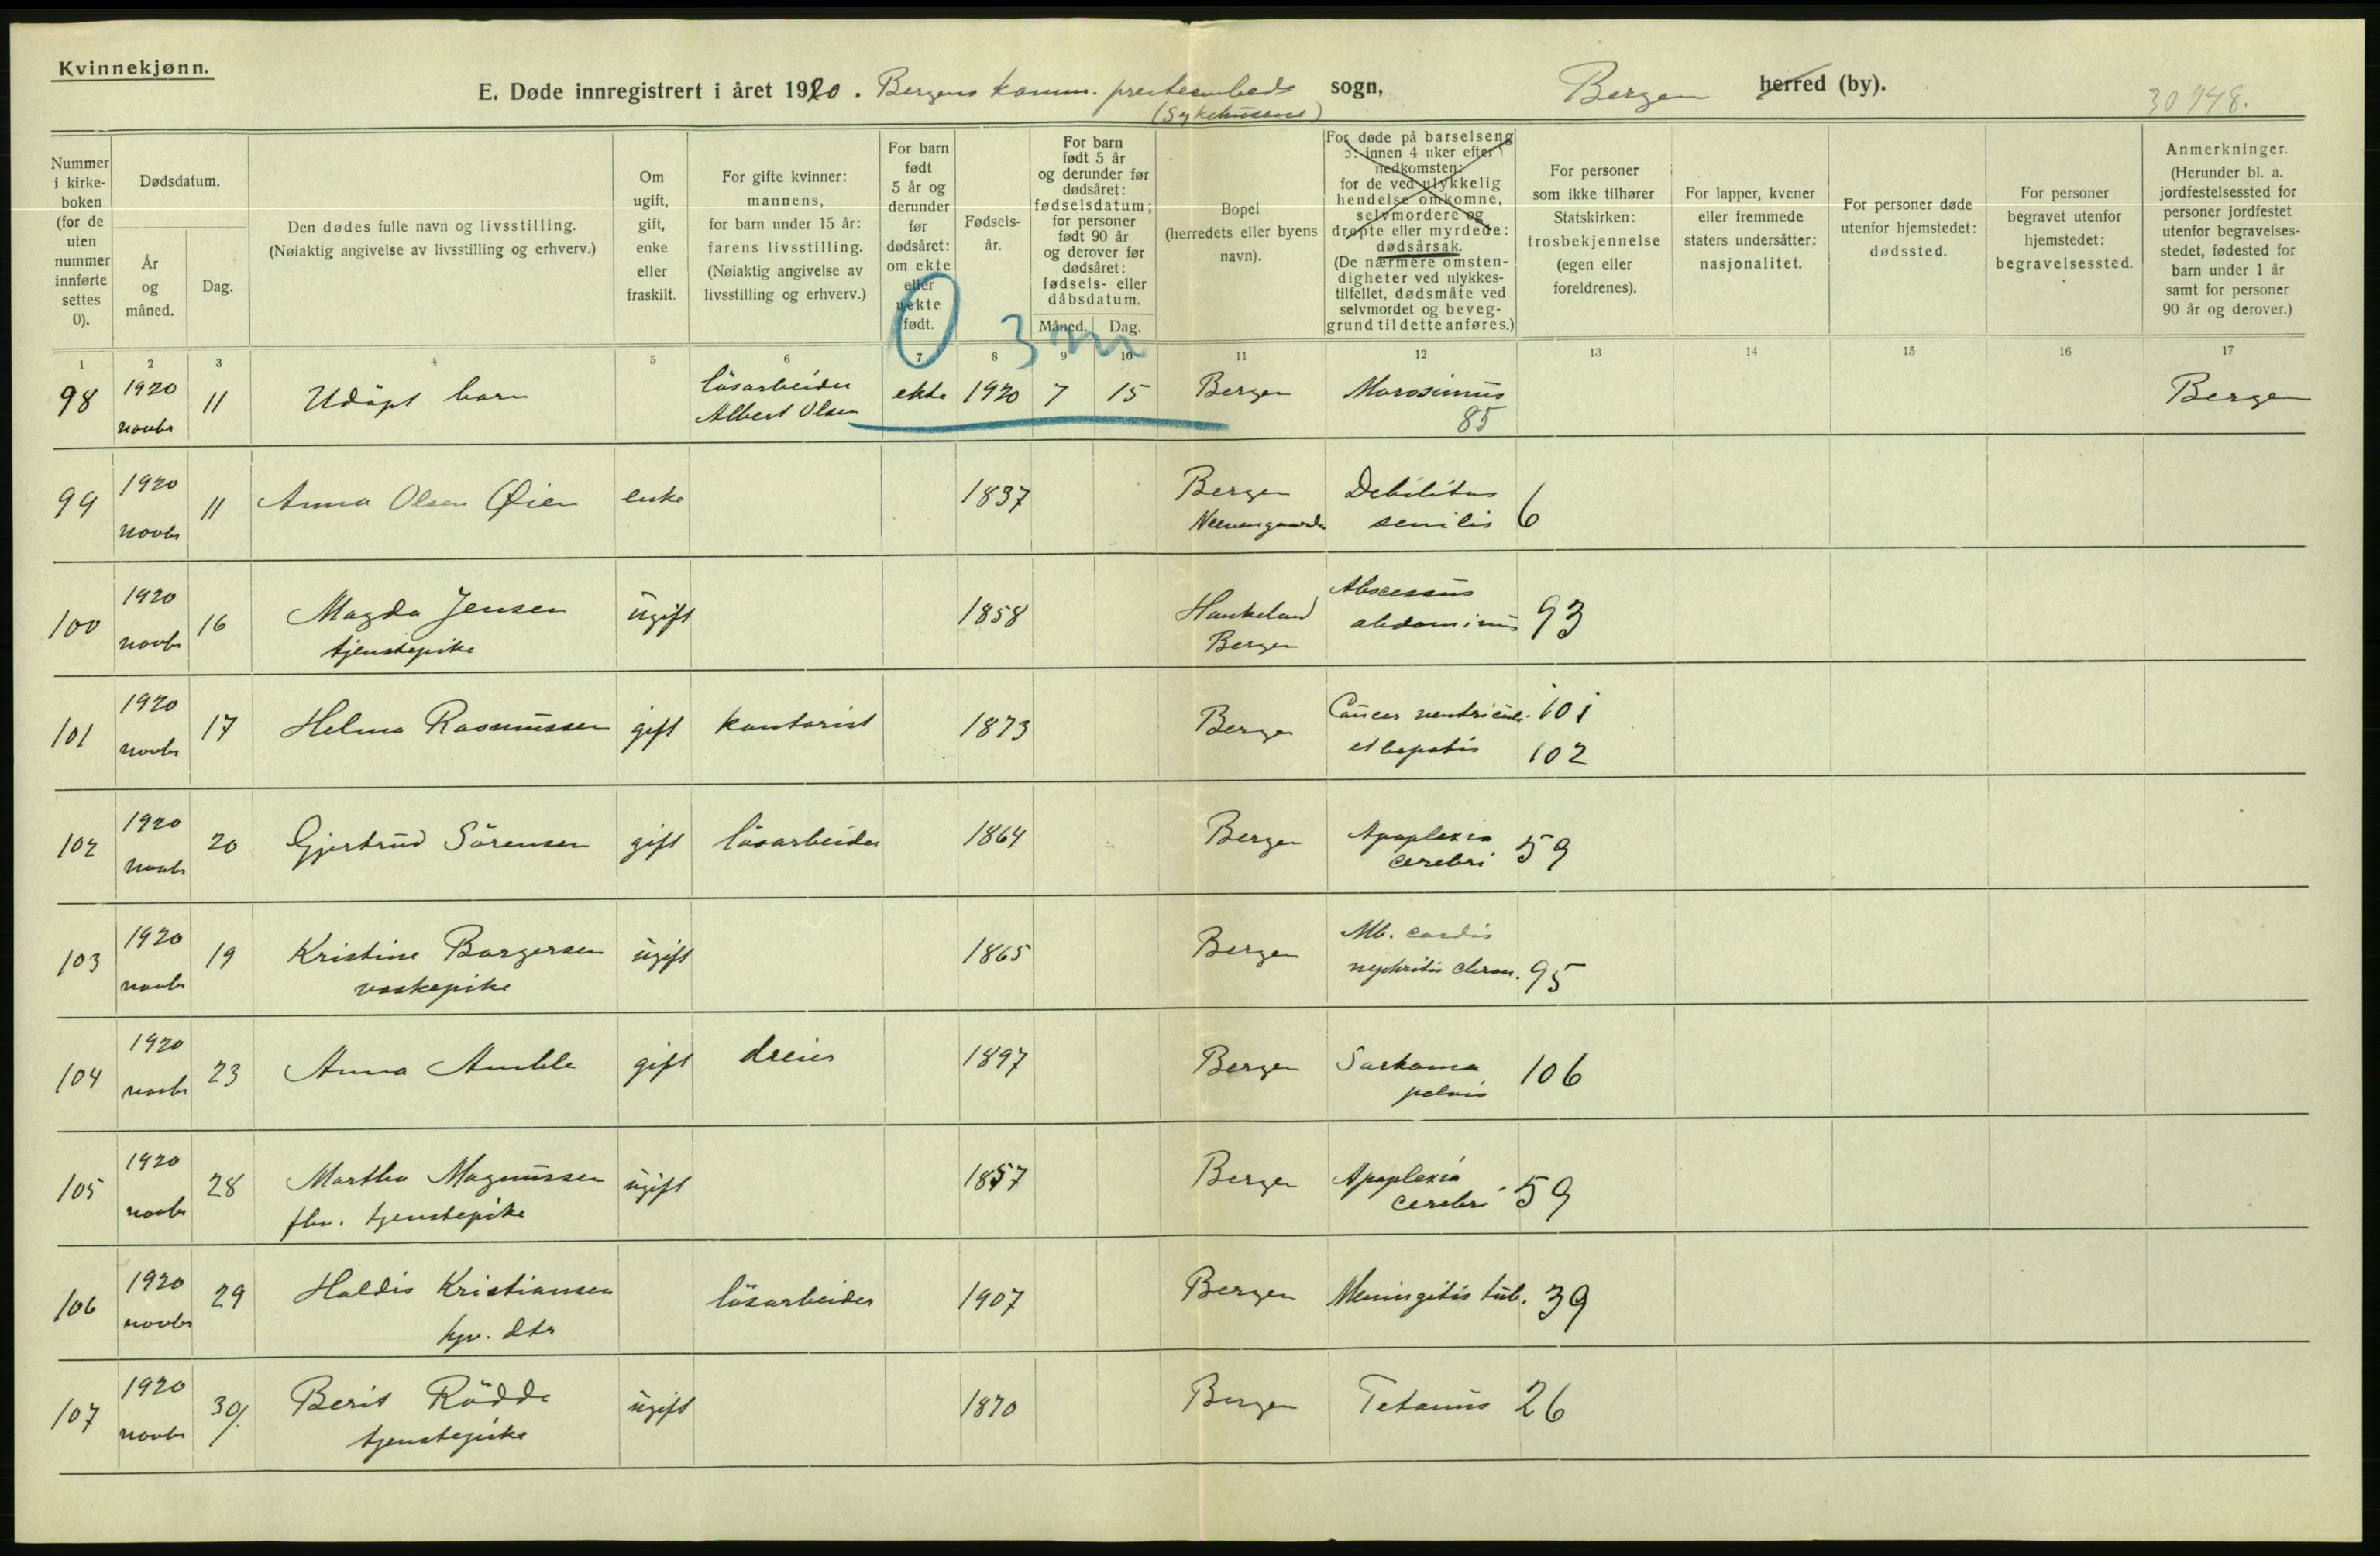 Kvinnekjønn.
E. Døde innregistrert i året 1920. Bergens komm. presteembeds sogn, Bergen herred (by).
(Sykehusene)
30948.
Nummer i kirke-boken (for de uten nummer innførte settes 0).
Dødsdatum.
År og måned.
Dag.
Den dødes fulle navn og livsstilling.
(Nøiaktig angivelse av livsstilling og erhverv.)
Om ugift, gift, enke eller fraskilt.
For gifte kvinner: mannens, for barn under 15 år: farens livsstilling. (Nøiaktig angivelse av livsstilling og erhverv.)
For barn født 5 år og derunder før dødsåret: om ekte eller uekte født.
Fødsels-år.
For barn født 5 år og derunder før dødsåret: fødselsdatum; for personer født 90 år og derover før dødsåret: fødsels- eller dåbsdatum.
Måned. Dag.
Bopel (herredets eller byens navn).
For døde på barselseng ɔ: innen 4 uker efter nedkomsten; for de ved ulykkelig hendelse omkomne, selvmordere og drepte eller myrdede: dødsårsak. (De nærmere omsten-digheter ved ulykkes-tilfellet, dødsmåte ved selvmordet og beveg-grund til dette anføres.)
For personer som ikke tilhører Statskirken: trosbekjennelse (egen eller foreldrenes).
For lapper, kvener eller fremmede staters undersåtter: nasjonalitet.
For personer døde utenfor hjemstedet: dødssted.
For personer begravet utenfor hjemstedet: begravelsessted.
Anmerkninger. (Herunder bl. a. jordfestelsessted for personer jordfestet utenfor begravelses-stedet, fødested for barn under 1 år samt for personer 90 år og derover.)
0 3 m
1 2 3 4 5 6 7 8 9 10 11 12 13 14 15 16 17
98 1920 novbr 11 Udöpt barn lösarbeider Albert Olsen ekte 1920 7 15 Bergen Marasmus 85 Bergen
99 1920 novbr 11 Anna Olsen Øien enke 1837 Bergen Neevengaarden Debilitas senilis 6
100 1920 novbr 16 Magda Jensen ugift 1858 Haukeland Abscessus abdominis 93
tjenstepike Bergen
101 1920 novbr 17 Helma Rasmussen gift kontorist 1873 Bergen Cancer ventriculi 101
et hepatis 102
102 1920 novbr 20 Gjertrud Sörensen gift lösarbeider 1864 Bergen Apoplexia cerebri 59
103 1920 novbr 19 Kristine Borgersen ugift 1865 Bergen Mb. cordis
vaskepike nephritis chron. 95
104 1920 novbr 23 Anna Amble gift dreier 1897 Bergen Sarkoma pelvis 106
105 1920 novbr 28 Martha Magnussen ugift 1857 Bergen Apoplexia cerebri 59
fhv. tjenstepike
106 1920 novbr 29 Haldis Kristiansen lösarbeider 1907 Bergen Meningitis tub. 39
hjv. dtr
107 1920 novbr 30/ Berit Rödde ugift 1870 Bergen Tetanus 26
tjenstepike